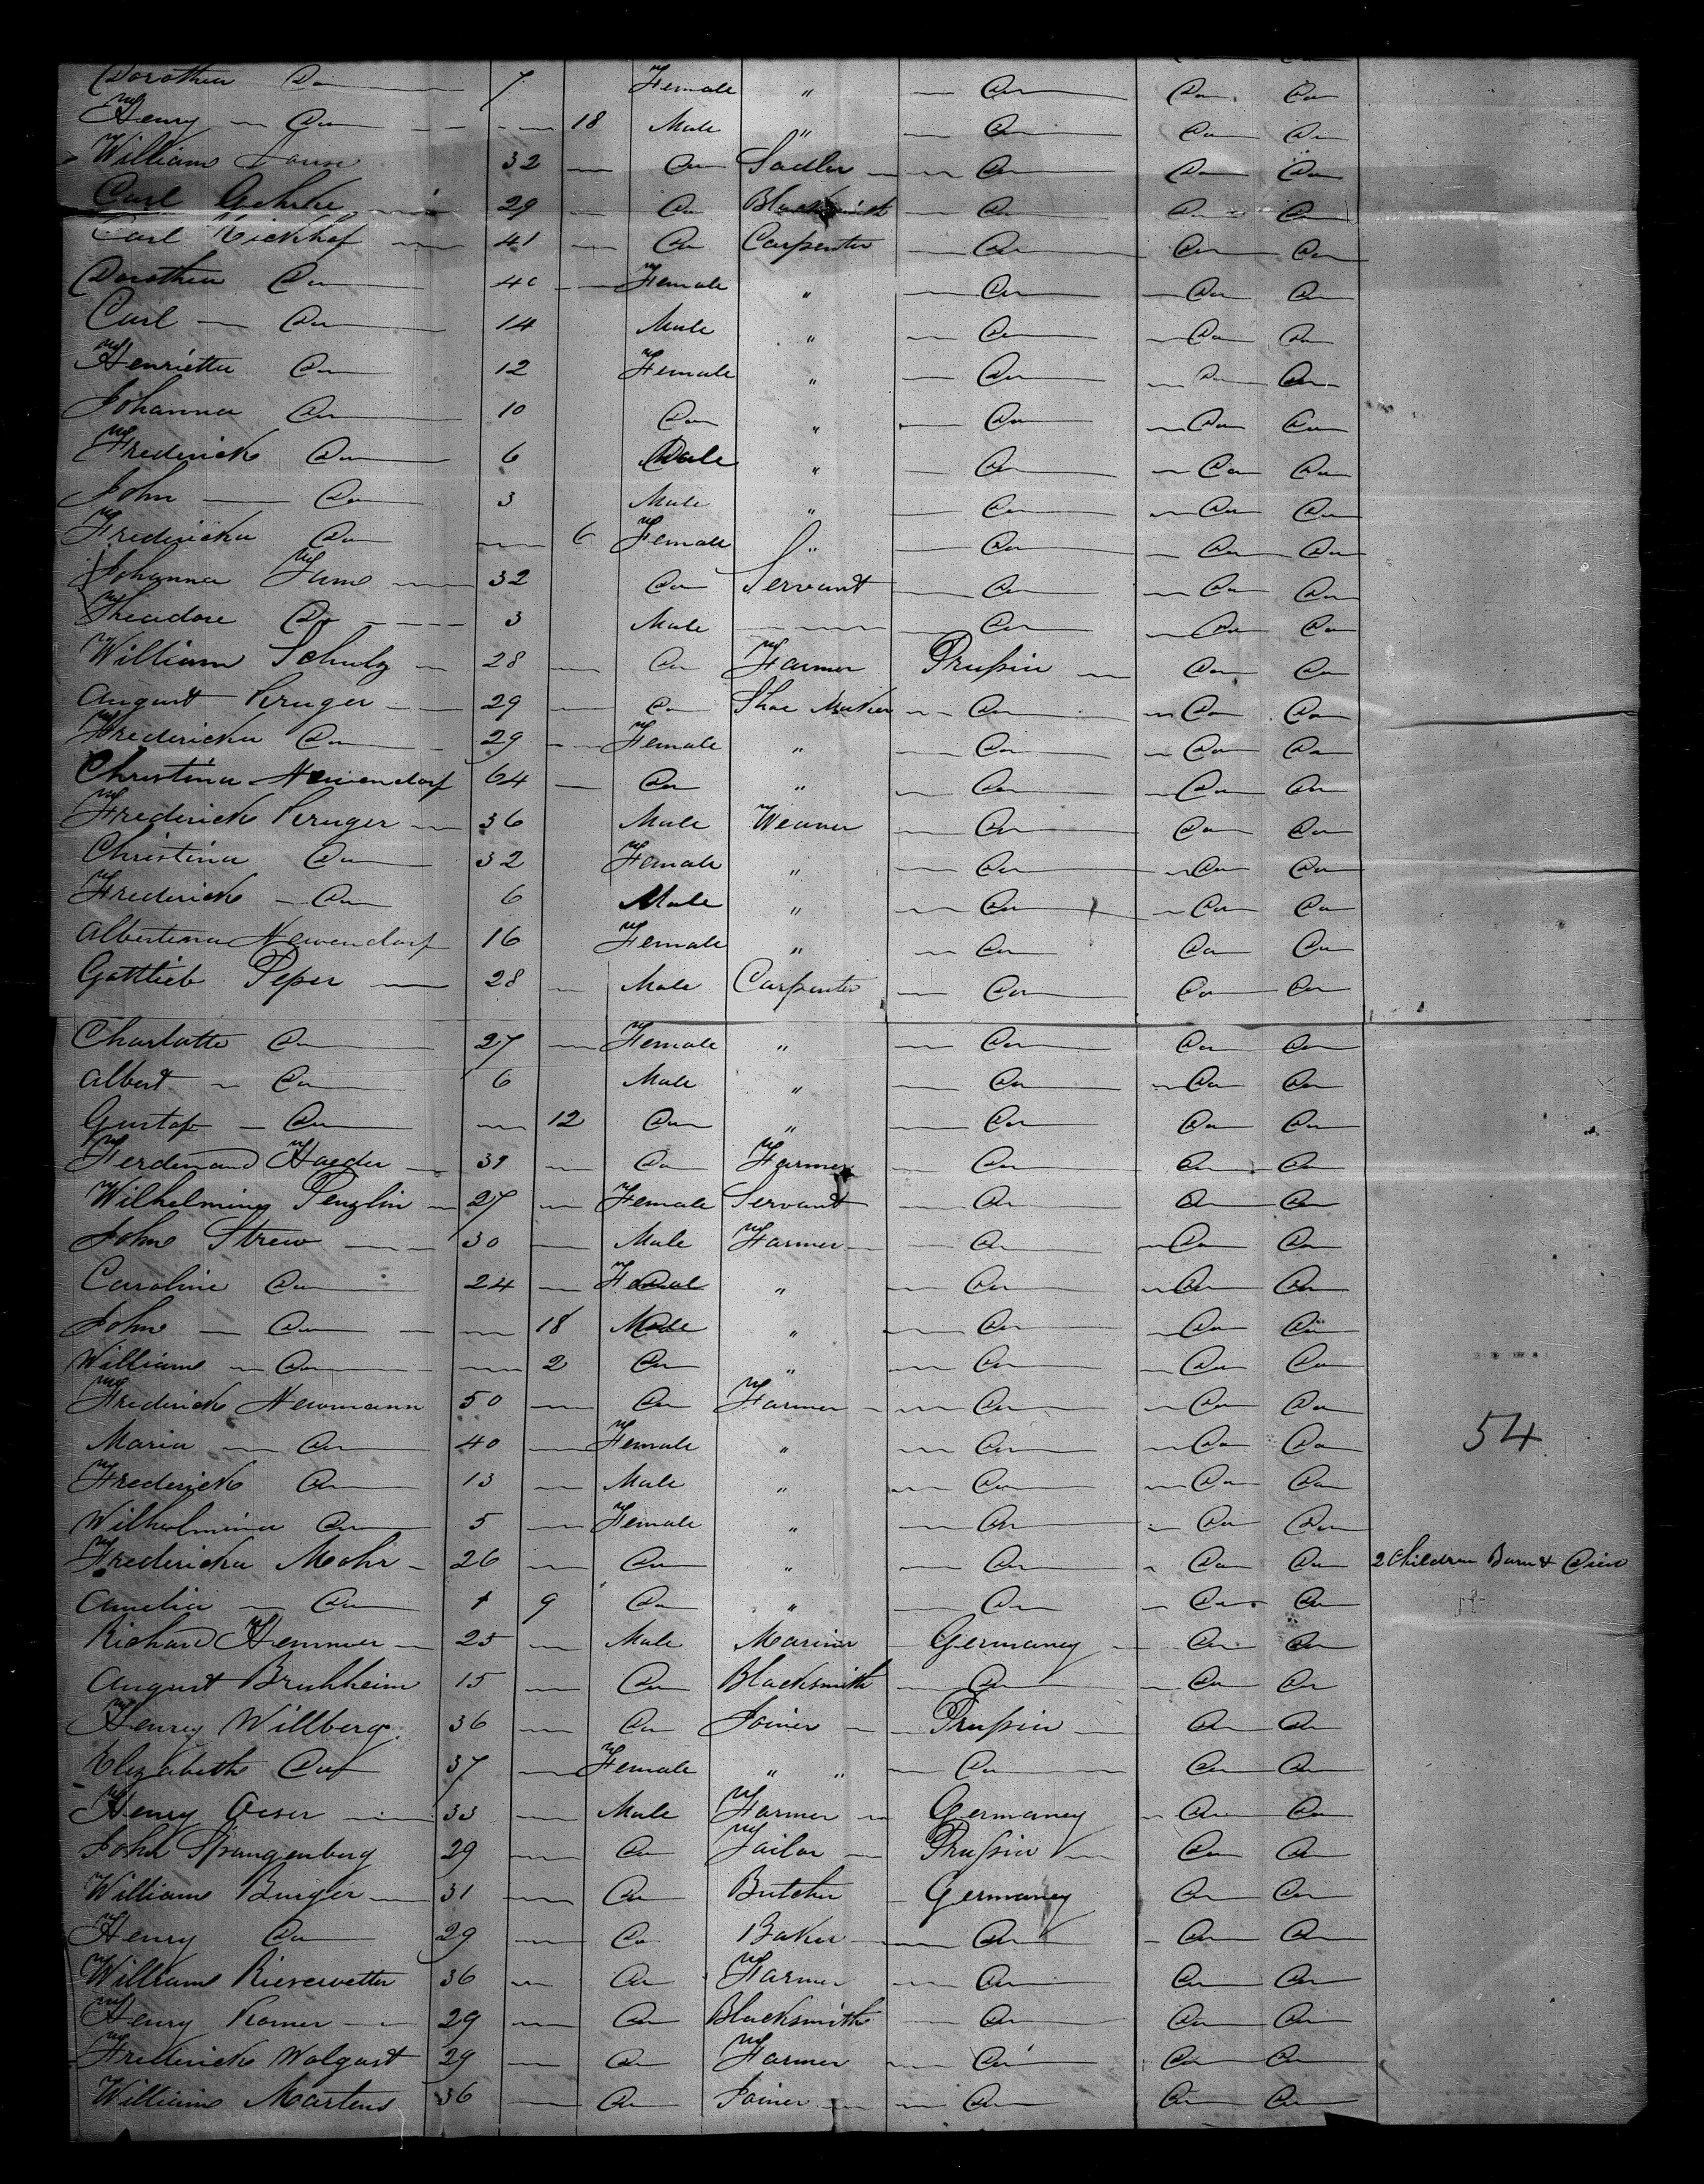 Dorothea Do 7 Female " Do Do Do
Henry Do 18 Male " Do Do Do
William 32 Do Sadler Do Do Do
Carl 29 Do Blacksmith Do Do Do
Carl Kickhof 41 Do Carpenter Do Do Do
Dorothea Do 40 Female " Do Do Do
Carl Do 14 Male " Do Do Do
Henrietta Do 12 Female " Do Do Do
Johanna Do 10 Do " Do Do Do
Frederick Do 6 Male " Do Do Do
John Do 3 Male " Do Do Do
Fredericka Do 6 Female " Do Do Do
Johanna 32 Do Servant Do Do Do
Theadore Do 3 Male Do Do Do
William Schulz 28 Do Farmer Prussia Do Do
August Kruger 29 Do Shoe Maker Do Do Do
Fredericka Do 29 Female " Do Do Do
Christina Newendorf 64 Do " Do Do Do
Frederick Kruger 36 Male Weaver Do Do Do
Christina Do 32 Female " Do Do Do
Frederick Do 6 Male " Do Do Do
Albertina Newendorf 16 Female " Do Do Do
Gottlieb Peper 28 Male Carpenter Do Do Do
Charlotte Do 27 Female " Do Do Do
Albert Do 6 Male " Do Do Do
Gustaf Do 12 Do " Do Do Do
Ferdenand Haeder 39 Do Farmer Do Do Do
Wilhelmina Penzlin 27 Female Servant Do Do Do
John Strew 30 Male Farmer Do Do Do
Caroline Do 24 Female " Do Do Do
John Do 18 Male " Do Do Do
William Do 2 Do " Do Do Do
Frederick Newmann 50 Do Farmer Do Do Do
54
Maria Do 40 Female " Do Do Do
Frederick Do 13 Male " Do Do Do
Wilhelmina Do 5 Female " Do Do Do
Fredericka Mohr 26 Do " Do Do Do 2 Children Born & Died
Amelia Do 1 9 Do " Do Do Do
Richard Hemmer 25 Male Mariner Germaney Do Do
August Bruhheim 15 Do Blacksmith Do Do Do
Henry Willberg 36 Do Joiner Prussia Do Do
Elizabeth Do 37 Female " " Do Do Do
Henry Oeser 33 Male Farmer Germaney Do Do
John Spangenberg 29 Do Tailor Prussia Do Do
William Burger 31 Do Butcher Germaney Do Do
Henry Do 29 Do Baker Do Do Do
William Kieserwetter 36 Do Farmer Do Do Do
Henry Komer 29 Do Blacksmith Do Do Do
Frederick Wolgast 29 Do Farmer Do Do Do
William Martens 36 Do Joiner Do Do Do